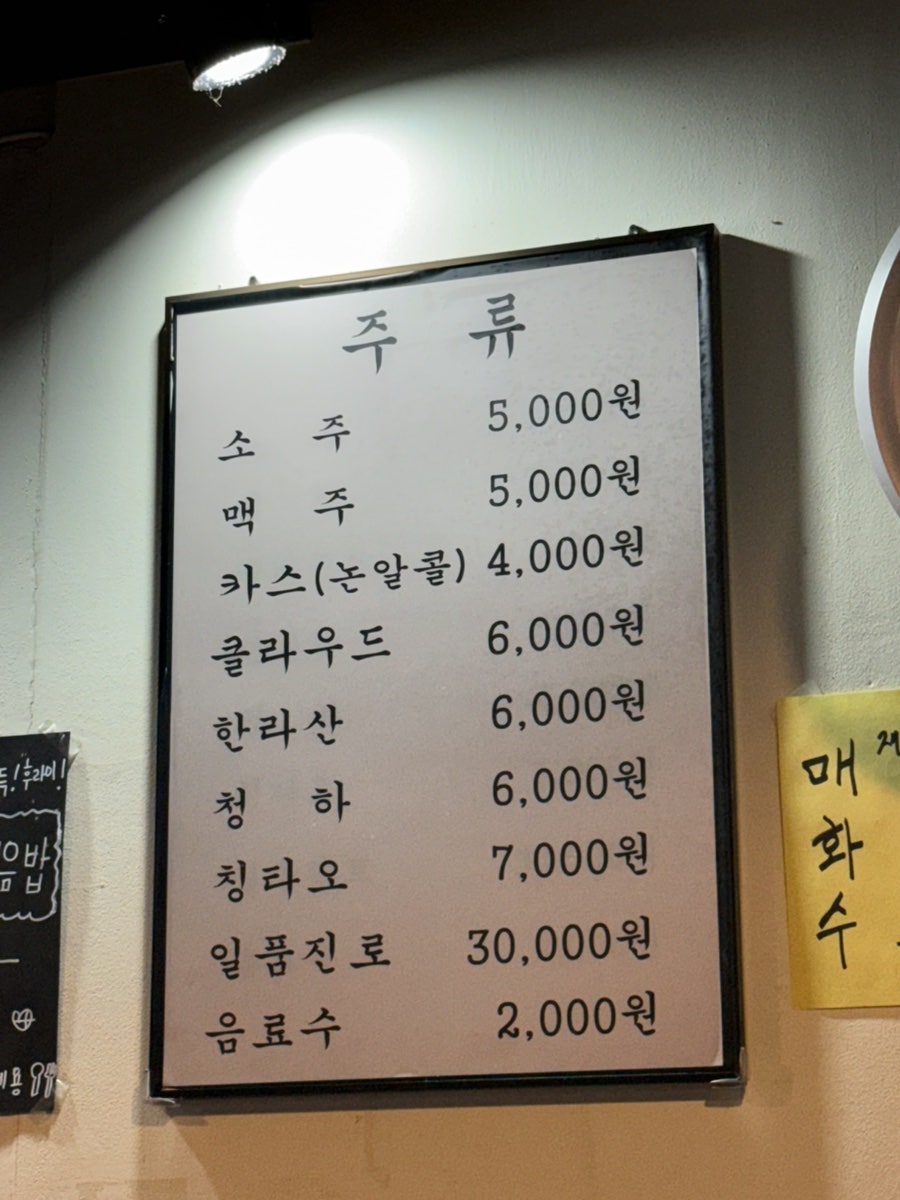 주 류
소 주 5,000원
맥 주 5,000원
카스(논알콜) 4,000원
클라우드 6,000원
한라산 6,000원
청 하 6,000원
칭타오 7,000원
일품진로 30,000원
음료수 2,000원
후라이!
음밥
매
화
수